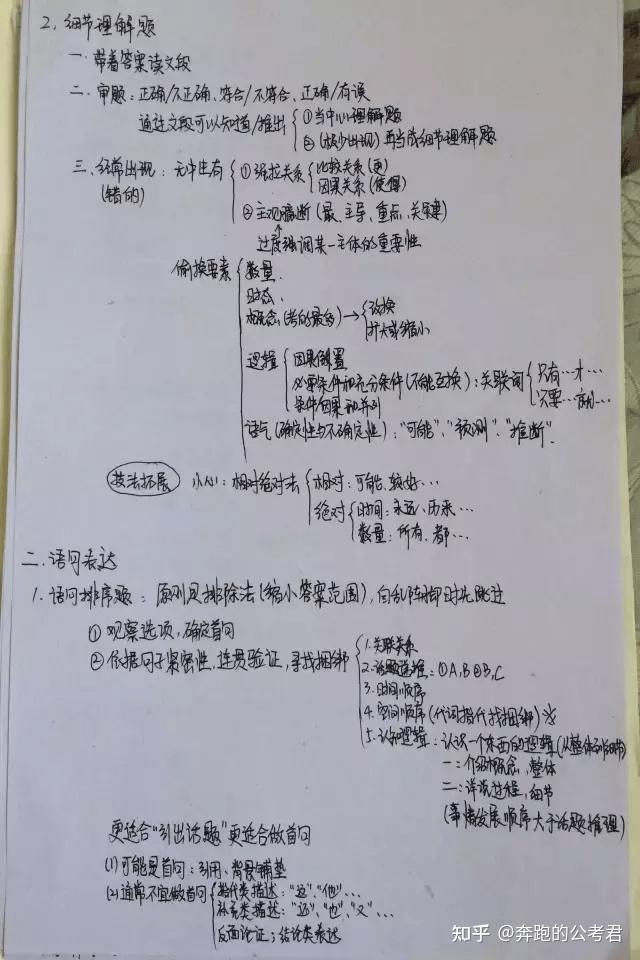 2. 细节理解题
一. 带着答案读文段
二. 审题：正确/不正确、符合/不符合、正确/有误
通过文段可以知道/推出 ①当中心理解题
②(极少出现)再当成细节理解题
三. 经常出现：无中生有 ①强拉关系 比较关系(更)
(错的) 因果关系(使得)
②主观臆断(最、主导、重点、关键)
过度强调某一主体的重要性
偷换要素 数量.
时态、
概念(考的最多)→ 改换
扩大或缩小
逻辑 因果倒置
必要条件和充分条件(不能互换)：关联词 只有…才…
条件因果和并列 只要…就…
语气(确定性与不确定性)："可能"、"预测"、"推断".
技法拓展 小心：相对绝对法 相对：可能、较好…
绝对 时间：永远、历来…
数量：所有、都…
二. 语句表达
1. 语句排序题：原则是排除法(缩小答案范围),
①观察选项,确定首句
②依据句子紧密性,连贯验证,寻找捆绑 1. 关联关系
2. 话题递推：①A,B②B,C
3. 时间顺序
4. 空间顺序(代词指代找捆绑)※
5. 认知逻辑：认识一个东西的逻辑(从整体到细节)
一：介绍概念,整体
二：详说过程,细节
(事情发展顺序大于话题推理)
更适合"引出话题"更适合做首句
(1)可能是首句：引用、背景铺垫
(2)通常不宜做首句 指代类描述："这"、"他"…
补充类描述："还"、"也"、"又"…
反面论证；结论类表达
知乎 @奔跑的公考君